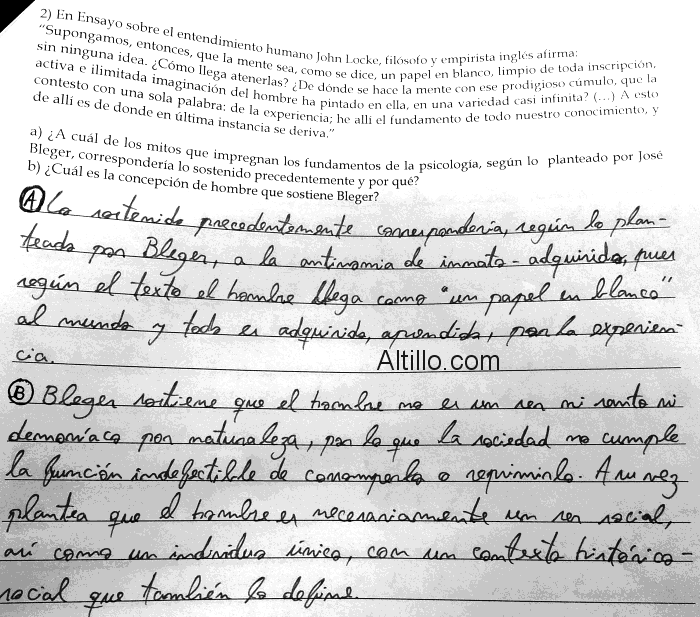 2) En Ensayo sobre el entendimiento humano John Locke, filósofo y empirista inglés afirma:
"Supongamos, entonces, que la mente sea, como se dice, un papel en blanco, limpio de toda inscripción,
sin ninguna idea. ¿Cómo llega atenerlas? ¿De dónde se hace la mente con ese prodigioso cúmulo, que la
activa e ilimitada imaginación del hombre ha pintado en ella, en una variedad casi infinita? (...) A esto
contesto con una sola palabra: de la experiencia; he allí el fundamento de todo nuestro conocimiento, y
de allí es de donde en última instancia se deriva."
a) ¿A cuál de los mitos que impregnan los fundamentos de la psicología, según lo planteado por José
Bleger, correspondería lo sostenido precedentemente y por qué?
b) ¿Cuál es la concepción de hombre que sostiene Bleger?
A) Lo sostenido precedentemente correspondería, según lo plan-
teado por Bleger, a la antinomia de innato-adquirido, pues
según el texto el hombre llega como "un papel en blanco"
al mundo y todo es adquirido, aprendido, por la experien-
cia.
Altillo.com
B) Bleger sostiene que el hombre no es un ser ni santo ni
demoníaco por naturaleza, por lo que la sociedad no cumple
la función indefectible de corromperlo o reprimirlo. A su vez
plantea que el hombre es necesariamente un ser social,
así como un individuo único, con un contexto histórico-
social que también lo define.